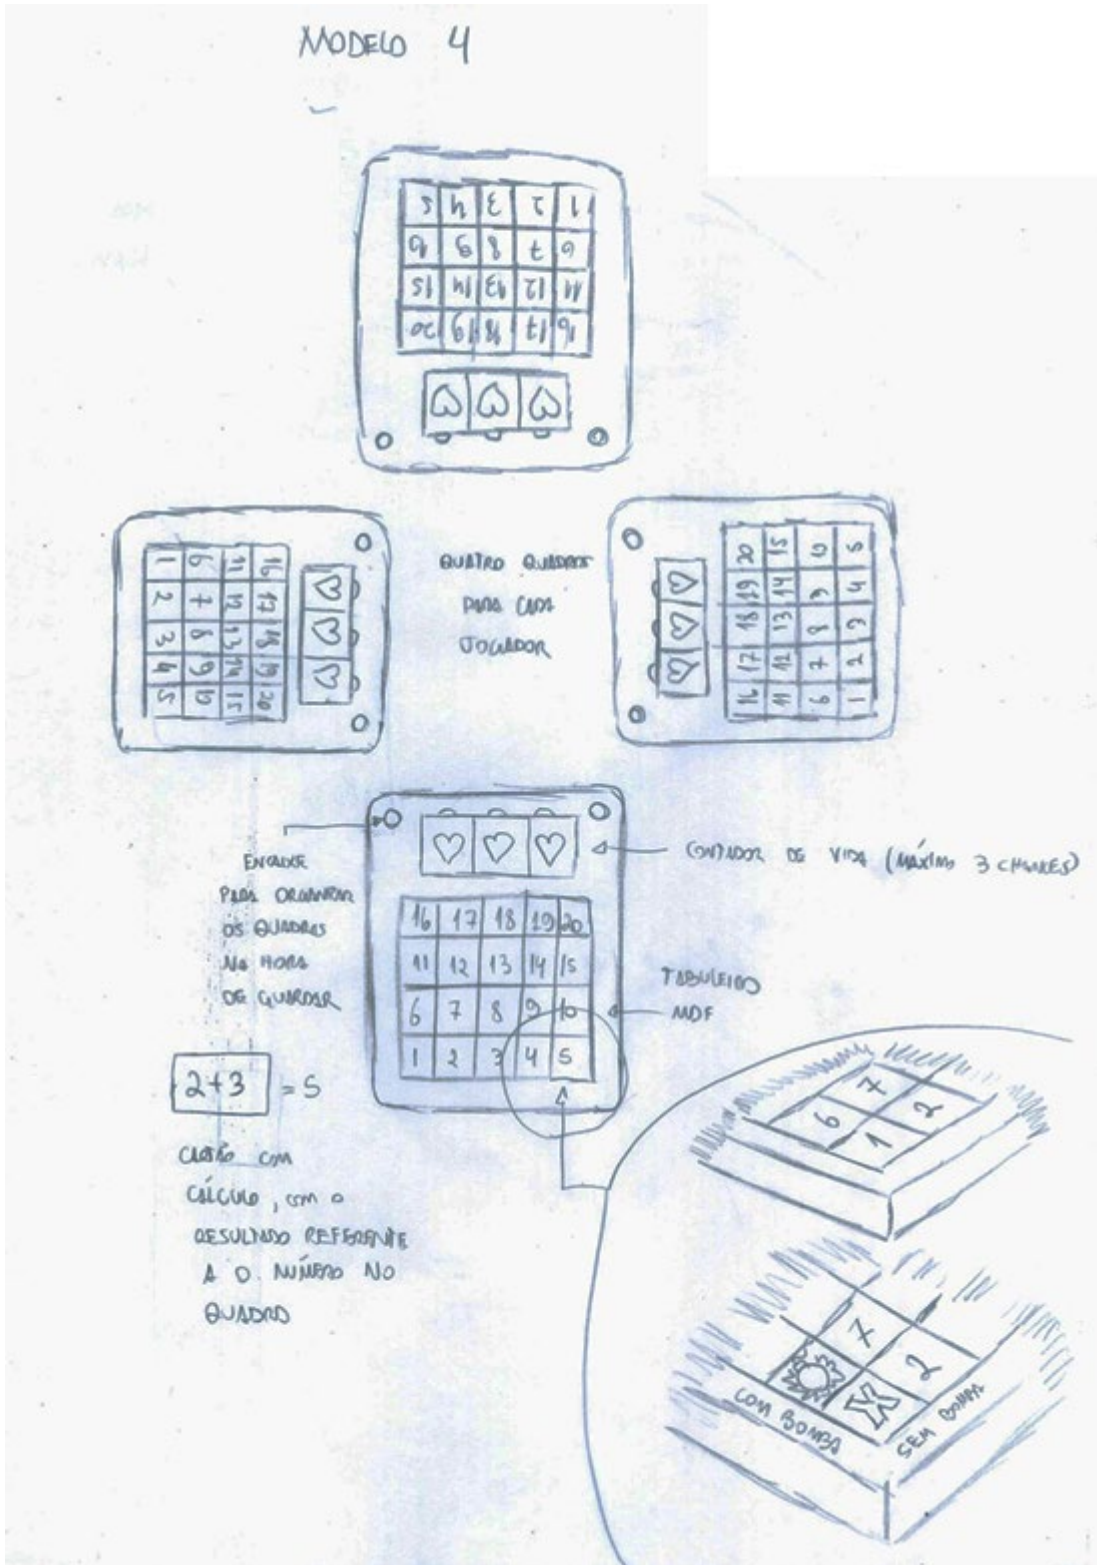 MODELO 4
5 4 3 2 1
10 9 8 7 6
15 14 13 12 11
20 19 18 17 16
1 6 11 16
2 7 12 17
3 8 13 18
4 9 14 19
5 10 15 20
QUATRO QUADROS
PARA CADA
JOGADOR
20 15 10 5
19 14 9 4
18 13 8 3
17 12 7 2
16 11 6 1
ENCAIXE
PARA ORGANIZAR
OS QUADROS
NA HORA
DE GUARDAR
CONTADOR DE VIDA (MÁXIMO 3 CHANCES)
16 17 18 19 20
11 12 13 14 15
6 7 8 9 10
1 2 3 4 5
TABULEIRO
MDF
2+3 = 5
CARTÃO COM
CÁLCULO, COM O
RESULTADO REFERENTE
A O NÚMERO NO
QUADRO
6 7
1 2
7
2
COM BOMBA
SEM BOMBA